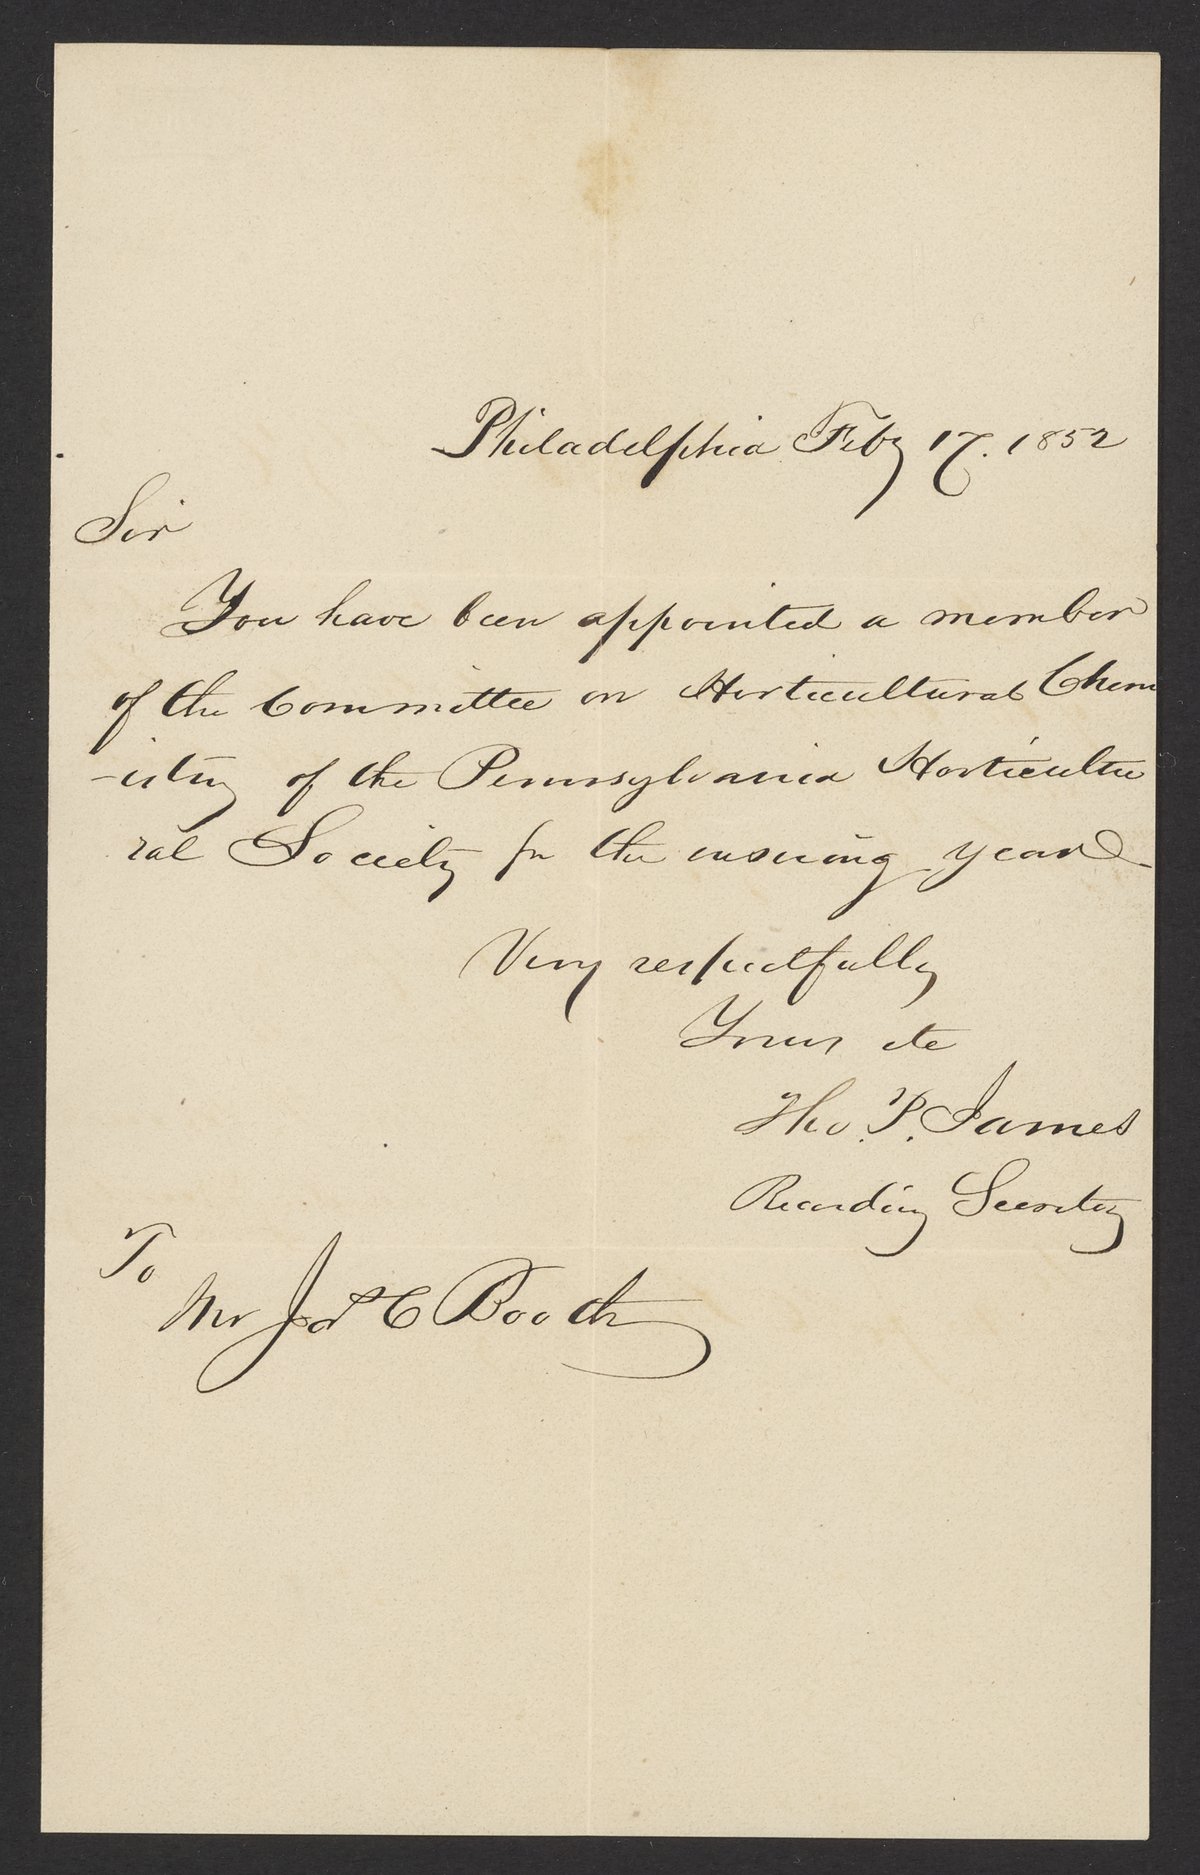 Philadelphia Feby 17. 1852
Sir
You have been appointed a member
of the Committee on Horticultural Chem
-istry of the Pennsylvania Horticultu
ral Society for the ensuing year
Very respectfully
Yours etc
Tho. P. James
Recording Secretary
To
Mr Jas C Booth